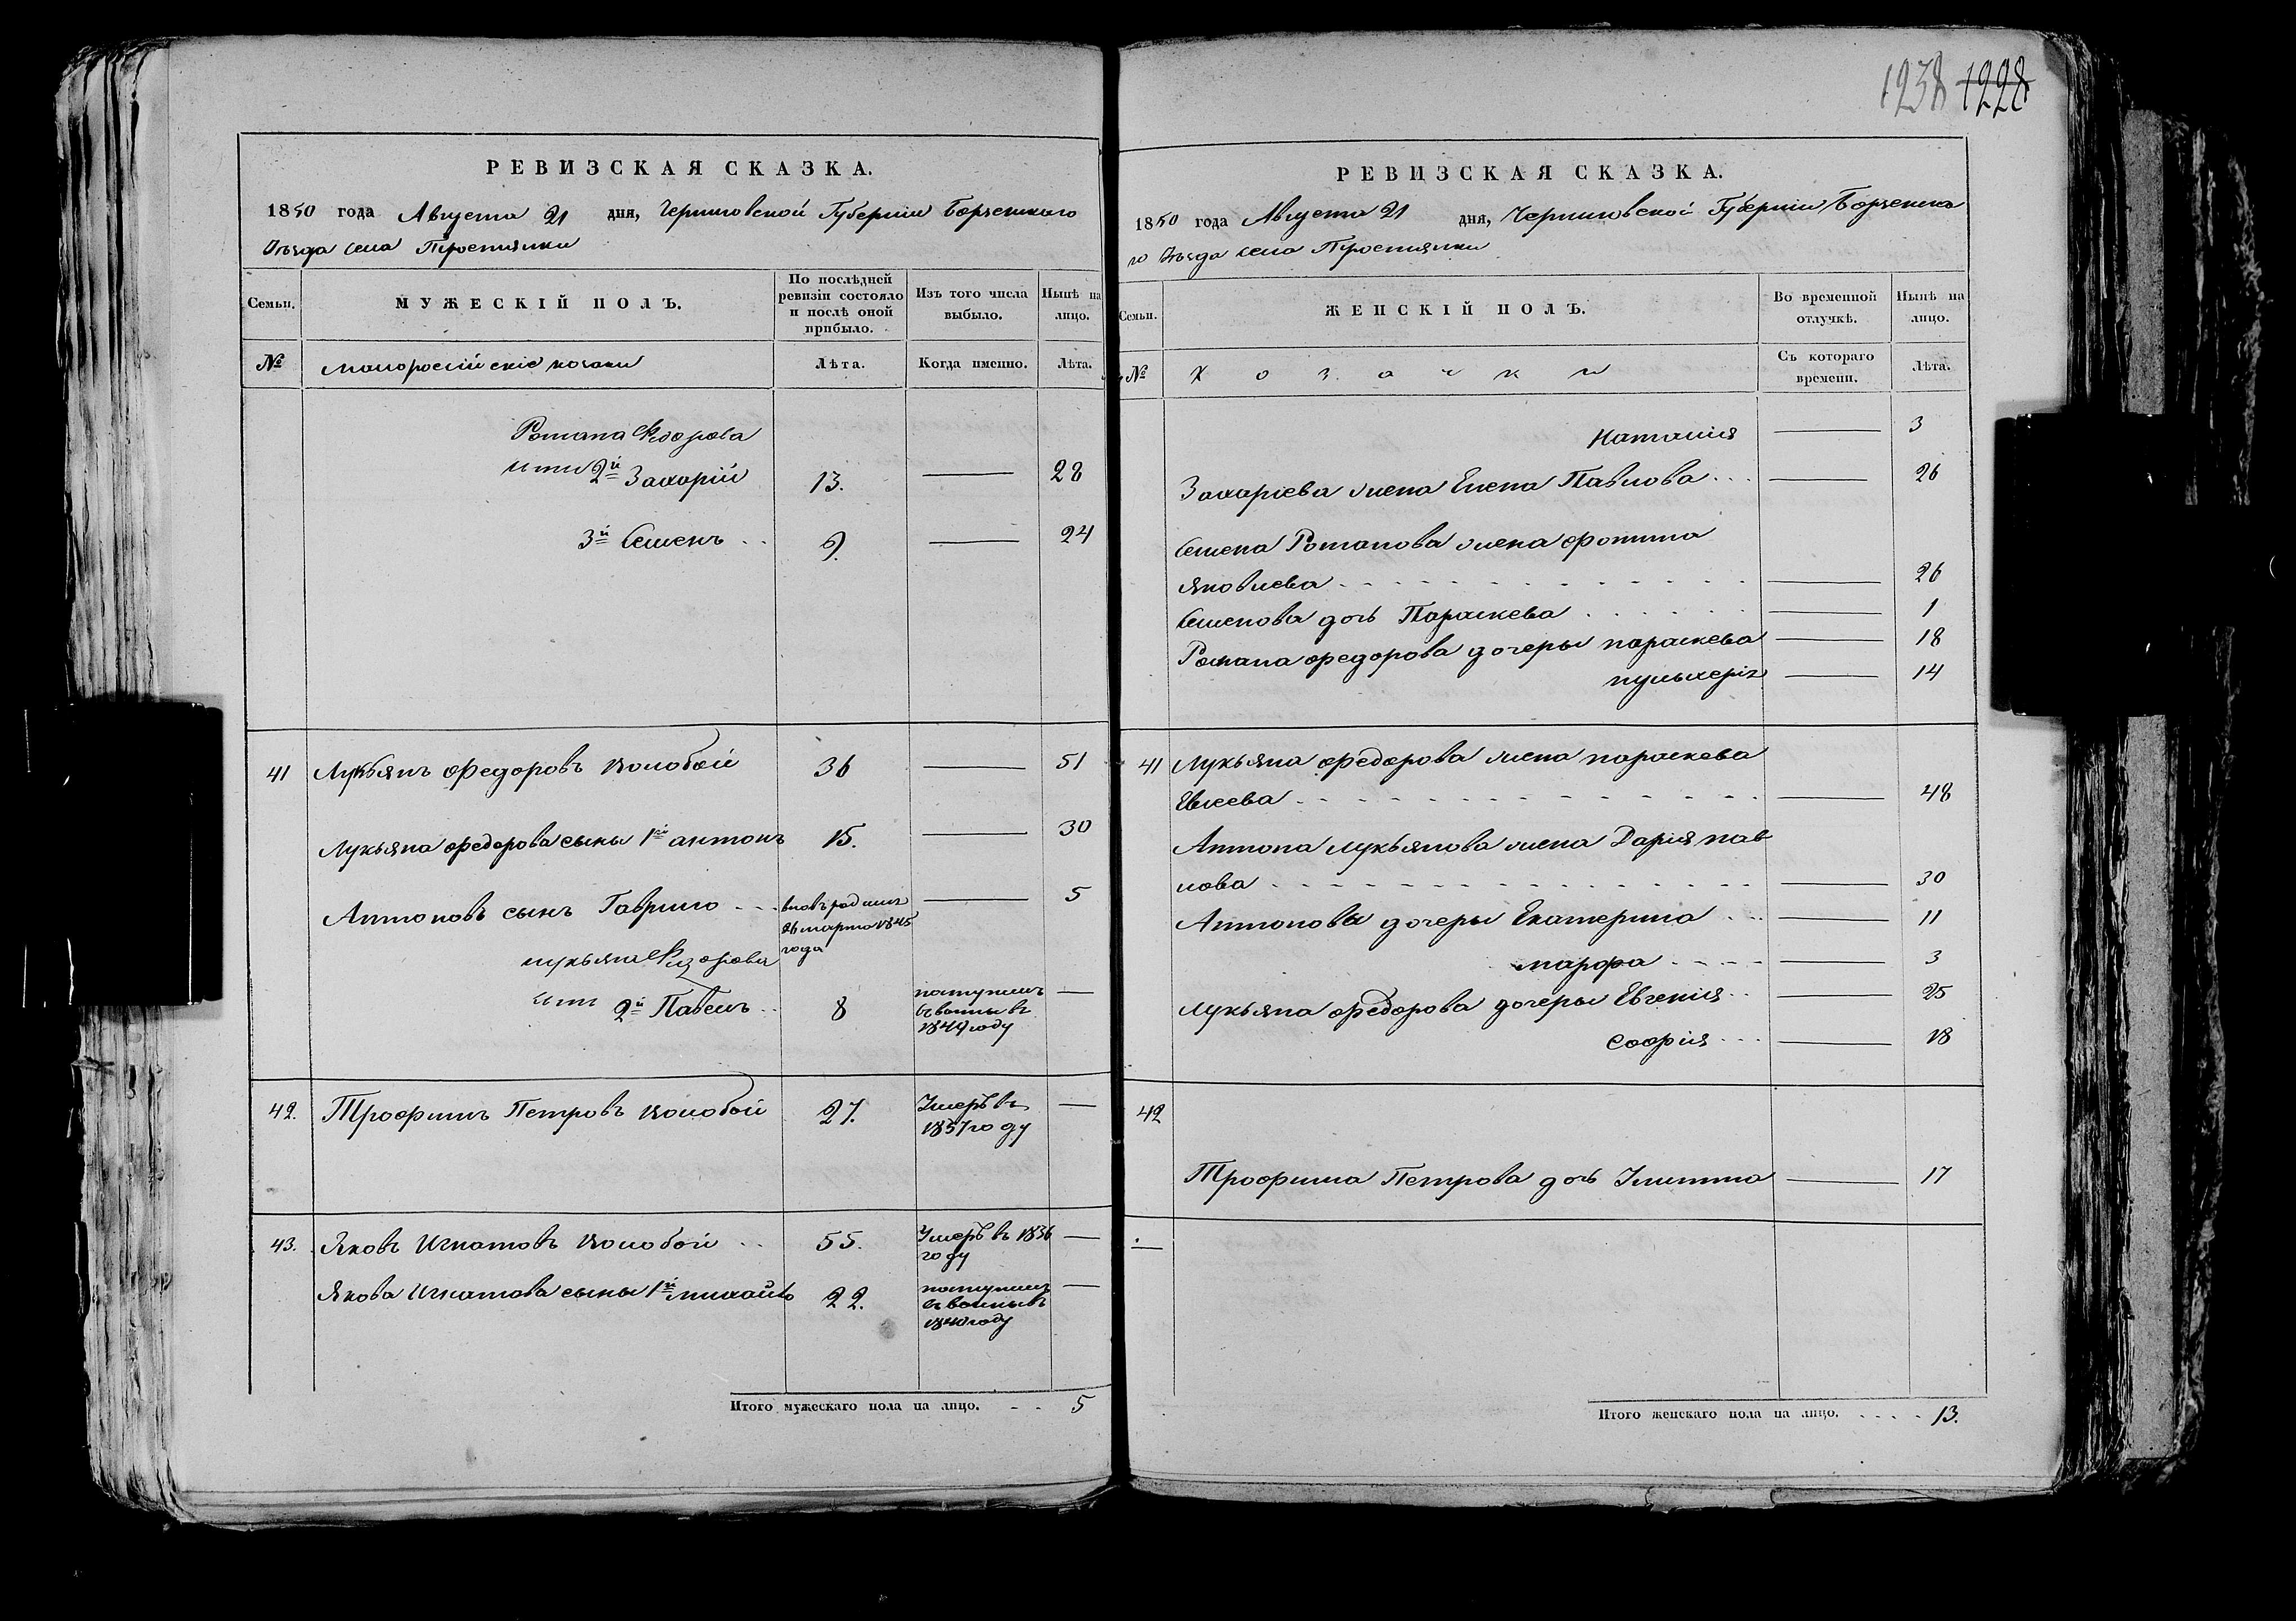 1238 1228
РЕВИЗСКАЯ СКАЗКА.
1850 года Августа 21 дня, Черниговской Губернии Борзенского
Уѣзда села Тростянки
Семьи.
МУЖЕСКІЙ ПОЛЪ.
По послѣдней ревизіи состояло и послѣ оной прибыло.
Изъ того числа выбыло.
Нынѣ на лицо.
№
малороссійскіе козаки
Лѣта.
Когда именно.
Лѣта.
Романа Федорова
2й Захарій 13. 28
3й Семенъ 9. 24
41 Лукьянъ Федоровъ 36 51
Лукьяна Федорова сыны 1й антонъ 15. 30
Антоновъ сынъ Гаврило вновь родился 5
26 марта 1845
года
лукьяна Федорова
2й Павелъ 8 поступилъ
въ 1849 году
42. Трофимъ Петровъ 27. Умеръ въ
1837 году
43. Яковъ Игнатовъ 55. Умеръ въ 1836
году
Якова Игнатова сыны 1й михайло 22. поступилъ
въ 1840 году
Итого мужескаго пола на лицо. 5
РЕВИЗСКАЯ СКАЗКА.
1850 года Августа 21 дня, Черниговской Губерніи Борзенска
го Уѣзда села Тростянки
Семьи.
ЖЕНСКІЙ ПОЛЪ.
Во временной отлучкѣ.
Нынѣ на лицо.
№
Козачки
Съ котораго времени.
Лѣта.
Наталия 3
Захаріева жена Елена Павлова 26
Семена Романова жена
Яковлева 26
Семенова дочь Параскева 1
Романа федорова дочери параскева 18
пульхерія 14
41 Лукьяна федорова жена параскева
48
Антона лукьянова жена Дария пав
лова 30
Антонова дочери Екатерина 11
марфа 3
лукьяна федорова дочери Евгения 25
софия 18
42
Трофима Петрова дочь 17
Итого женскаго пола на лицо. 13.